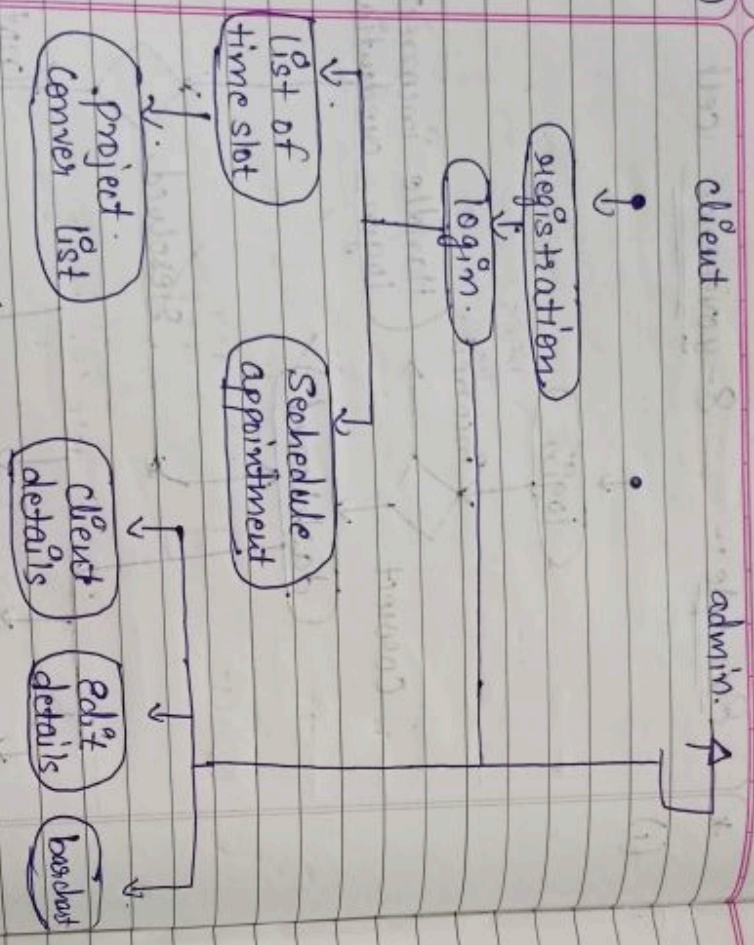 client
admin.
registration.
login.
list of
time slot
Sechedule
appointment
project.
conver list
client
details
edit
details
barchart